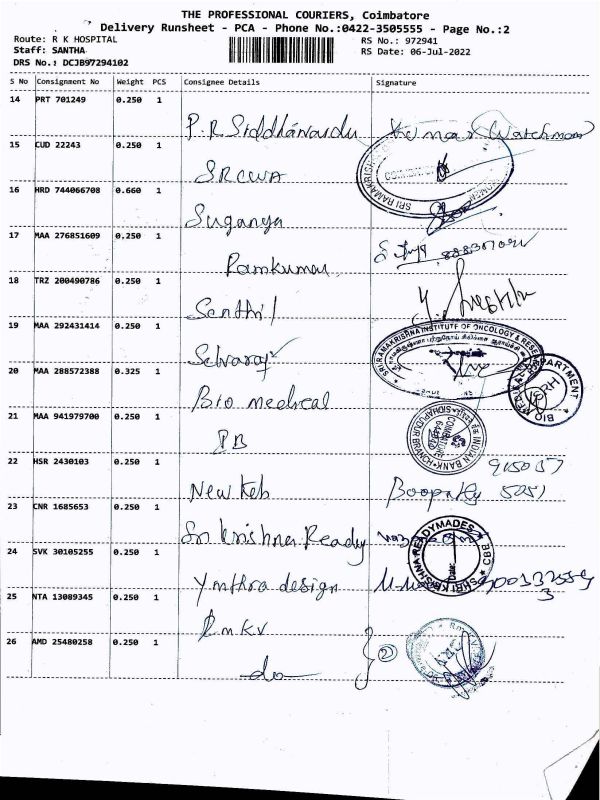 THE PROFESSIONAL COURIERS, Coimbatore
Delivery Runsheet - PCA - Phone No.:0422-3505555 - Page No.:2
Route: R K HOSPITAL
RS No.: 972941
Staff: SANTHA
RS Date: 06-Jul-2022
DRS No.: DCJB97294102
S No Consignment No Weight PCS Consignee Details Signature
14 PRT 701249 0.250 1
P.R Siddhanaidu Kumar Watchman
15 CUD 22243 0.250 1
SRCWA
16 HRD 744066708 0.660 1
Suganya
17 MAA 276851609 0.250 1
Ramkumar
18 TRZ 200490786 0.250 1
Senthil
19 MAA 292431414 0.250 1
SRI RAMAKRISHNA INSTITUTE OF ONCOLOGY & RESEARCH
Selvaraj
20 MAA 288572388 0.325 1
BIO MEDICAL DEPARTMENT
Bio medical
21 MAA 941979700 0.250 1
INDIAN BANK
COIMBATORE
IB
22 HSR 2430103 0.250 1
New Keb
Boopathy
23 CNR 1685653 0.250 1
Sri Krishna Ready
SHRI KRISHNA READYMADES
CBE
24 SVK 30105255 0.250 1
Ymthra design
25 NTA 13089345 0.250 1
RmKV
26 AMD 25480258 0.250 1
do
2